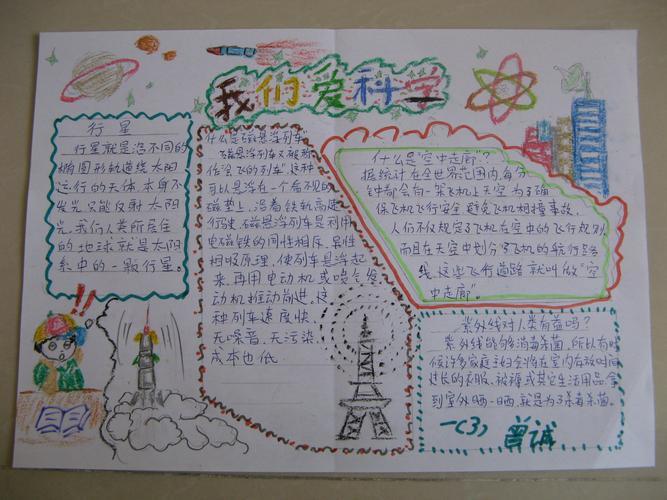 我们爱科学
行星
行星就是沿不同的
椭圆形轨道绕太阳
运行的天体,本身不
发光只能反射太阳
光,我们人类所居住
的地球就是太阳
系中的一颗行星。
什么是"磁悬浮列车"
磁悬浮列车又被称
作"会飞的列车",这种
可以悬浮在一个看不见的
磁垫上,沿着铁轨高速
行驶,磁悬浮列车是利用
电磁铁的同性相斥、异性
相吸原理,使列车悬浮起
来,再用电动机或喷气发
动机推动前进,这
种列车速度快、
无噪音、无污染、
成本也低
什么是"空中走廊"?
据统计在全世界范围内每分
钟都会有一架飞机上天空为了确
保飞机飞行安全,避免飞机相撞事故,
人们不仅规定了飞机在空中的飞行规则,
而且在天空中划分了飞机的航行路
线,这些飞行通路就叫做"空
中走廊"。
紫外线对人类有益吗?
紫外线能够消毒杀菌,所以有时
候许多家庭主妇会将在室内存放时间
过长的衣服、被褥或其它生活用品拿
到室外晒一晒,就是为了杀毒杀菌。
一(3) 曾诚